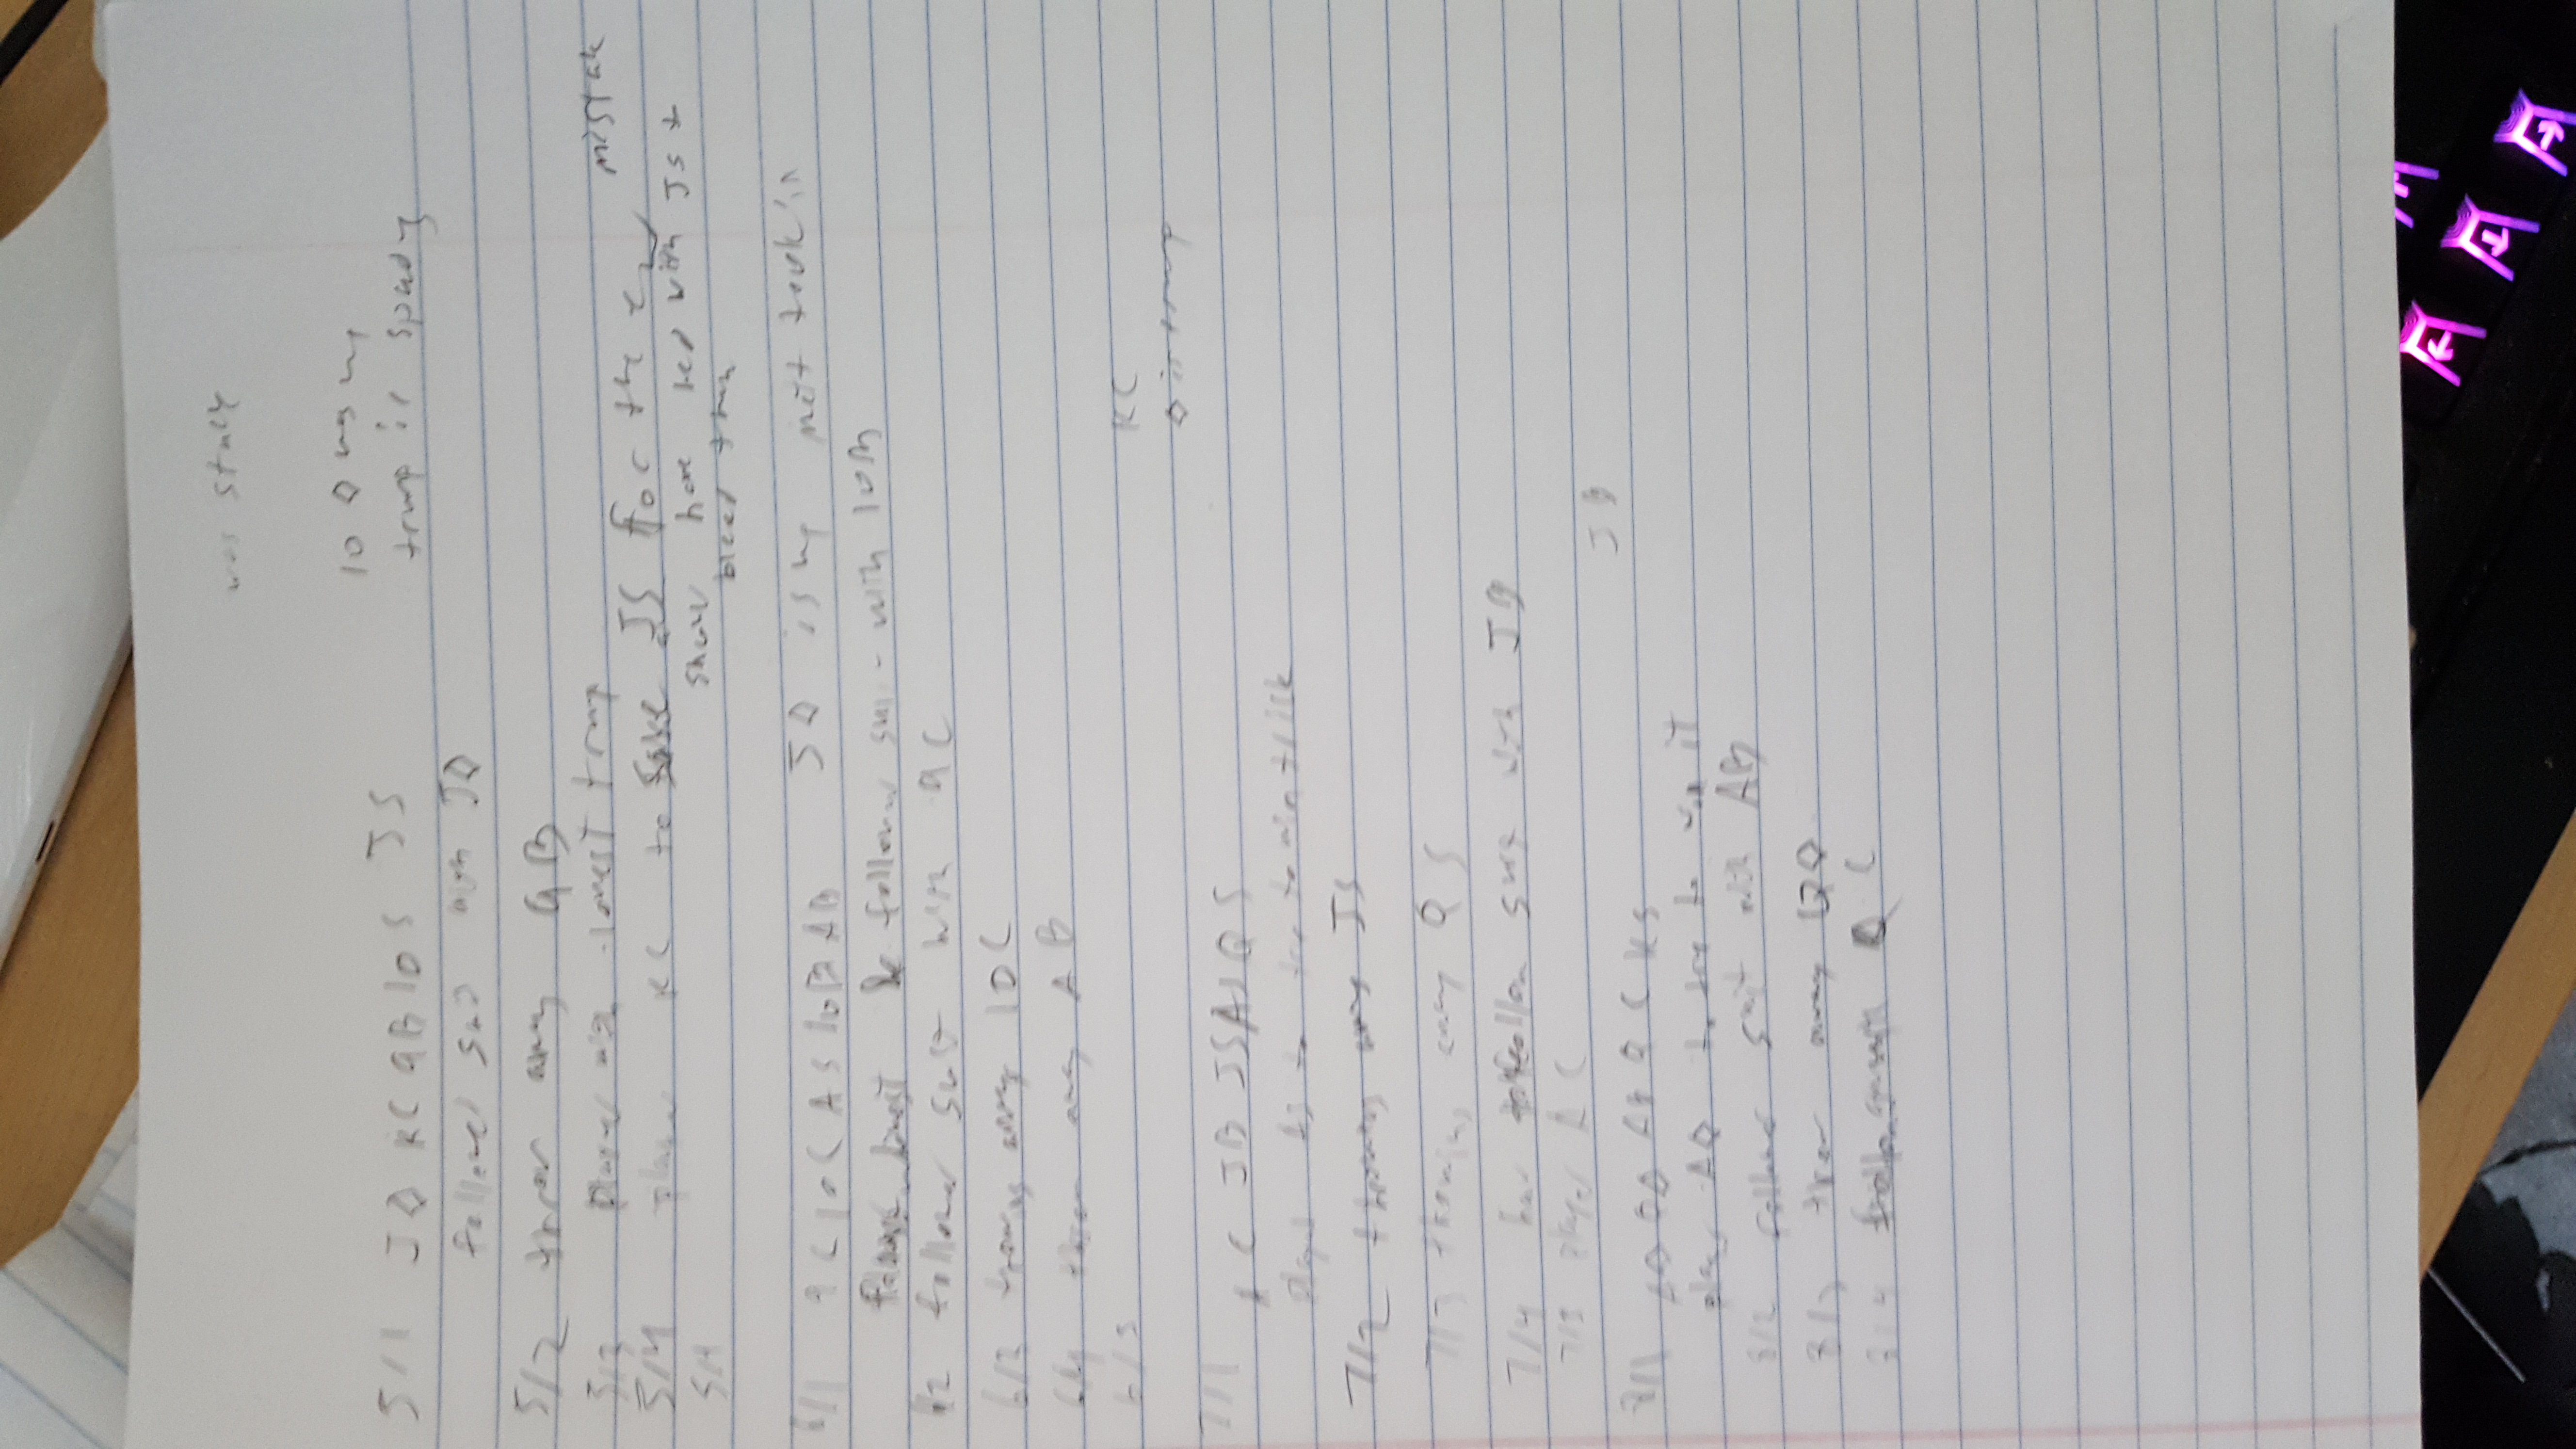 was stuck
10 ◊ was up
trump is spades
5/1 J◊ KC 9B 10 S JS
followed suit with J◊
5/2 threw away 9B
5/3 played with lowest trump
5/4 played KC to save JS for the end mistake
should have led with JS to
bleed them
5/4
6/1 9C 10C AS 10B AB J◊ is up
followed with 10B
6/2 followed suit with 9C
6/3 throwing away 10C
6/4 threw away AB
6/5
KC
◊ is trump
7/1 AC JB JS AS QS
played AS to try to win trick
7/2 throwing away JS
7/3 throwing away QS
7/4 had to follow suit with JB
7/5 played AC
JB
8/1 A◊ Q◊ AB QC KS
played A◊ to try to win it
8/2 followed suit with AB
8/3 threw away Q◊
8/4 QC